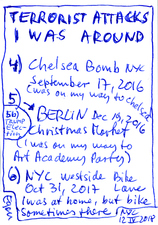 TERRORIST ATTACKS
I WAS AROUND
4) Chelsea Bomb NYC
September 17, 2016
(was on my way to Chelsea)
5)
5b) Trump
Elec-
tion
BERLIN Dec 19, 2016
Christmas Market
(I was on my way to
Art Academy Party)
6) NYC Westside Bike
Oct 31, 2017 Lane
(was at home, but bike
sometimes there)
NYC